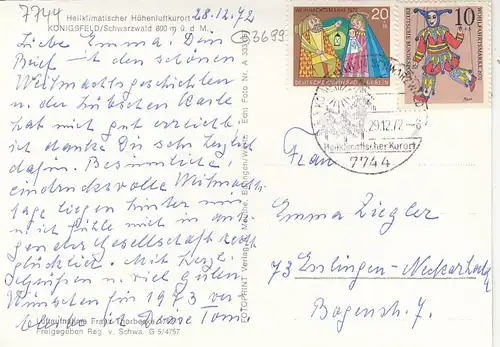 7744
28.12.72
Heilklimatischer Höhenluftkurort
KÖNIGSFELD/Schwarzwald 800 m ü. d. M.
3699
Liebe Emma! Dein
Brief mit den schönen
Weihnachtsgeschichten
u. der hübschen Karte
hat mich gut erreicht,
ich danke Dir sehr herzlich
dafür. Besinnliche,
eindrucksvolle Weihnachts-
tage liegen hinter mir,
u. ich fühle mich in
der Gesellschaft recht
glücklich. Mit herzl.
Grüßen u. viel guten
Wünschen für 1973 ver-
bleibe ich Deine Toni.
Luftaufnahme Franz Thorbecke
Freigegeben Reg. v. Schwa. G 5/4757
FOTOPRINT Verlag
Echt Foto Nr. A
WEIHNACHTSMARKE 1972
20
+10
DEUTSCHE BUNDESPOST BERLIN
WOHLFAHRTSMARKE 1970
10
+5
DEUTSCHE BUNDESPOST BERLIN
29.12.72-8
Heilklimatischer Kurort
7744
Frau
Emma Ziegler
73 Esslingen-Neckarhalde
Bogenstr. 7.